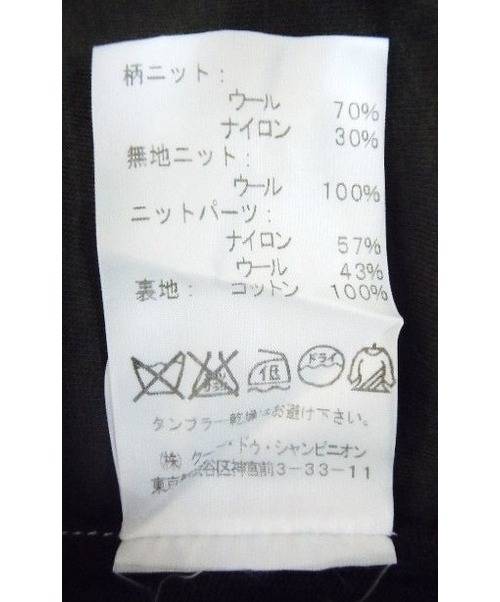 柄ニット:
ウール 70%
ナイロン 30%
無地ニット:
ウール 100%
ニットパーツ:
ナイロン 57%
ウール 43%
裏地: コットン 100%
低 ドライ
タンブラー乾燥はお避け下さい。
(株) クー・ドゥ・シャンピニオン
東京 渋谷区神宮前3-33-11